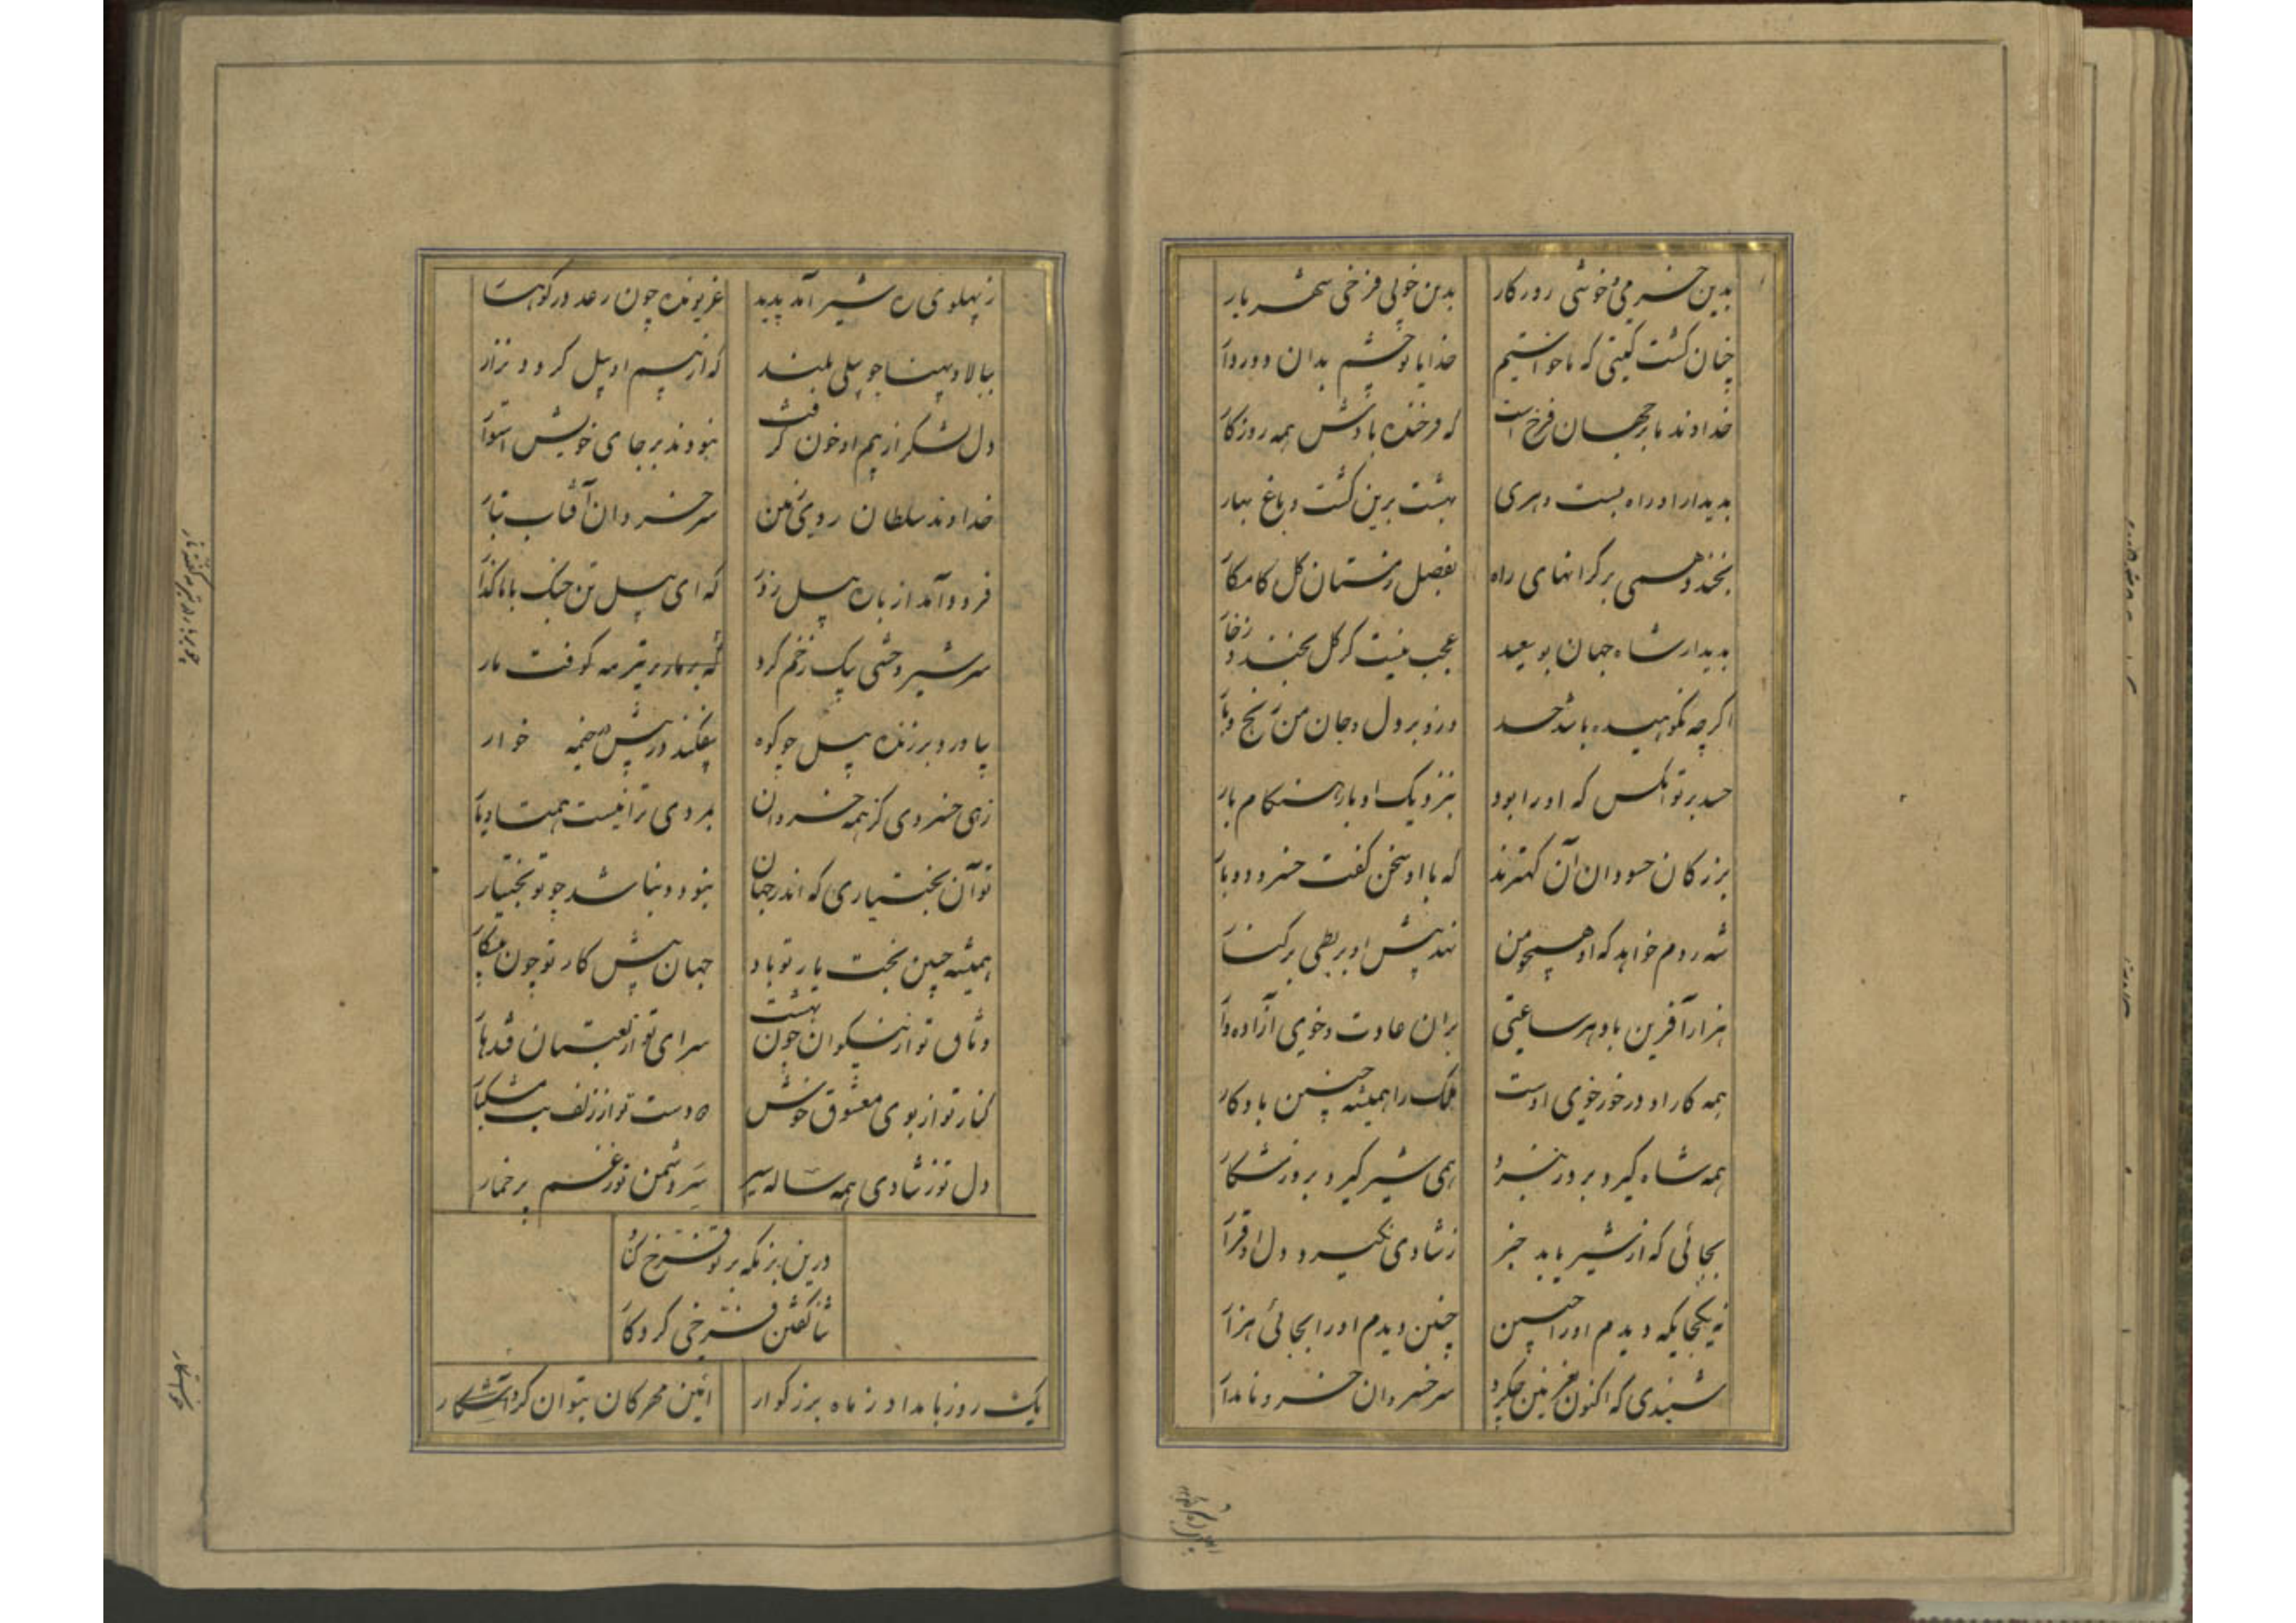 بدین خرمی و خوشی روزکار
بدین خوبی فرخی شهریار
چنان کشت کیتی که ما خواستیم
خدایا تو چشم بدان دور دار
خداوند ما بر جهان فرخ است
که فرخنده بادش همه روزکار
بدیدار او راه بست و هری
بهشت برین کشت و باغ بهار
بخندد همی بر کرانهای راه
بفصل زمستان کل کامکار
بدیدار شاه جهان بوسعید
عجب نیست کر کل بخندد ز خار
اکرچه نکوهیده باشد حسد
وزو بر دل و جان من رنج و بار
حسد برتوانکس که او را بود
بنزدیک او بار هنکام بار
بزرکان حسودان آن کهترند
که با او سخن کفت خسرو دو بار
شه روم خواهد که او همچو من
نهد پیش او بربطی بر کنار
هزار آفرین باد هر ساعتی
بران عادت و خوی آزاده وار
همه کار او درخور خوی اوست
ملک را همیشه چنین باد کار
همه شاه کیرد بروز نبرد
همی شیر کیرد بروز شکار
بجائی که از شیر یابد خبر
ز شادی نکیرد دل او قرار
نه یکجایکه دیدم او را چنین
چنین دیدم او را بجائی هزار
شنیدی که اکنون بغزنین چکرد
سر خسروان خسرو نامدار
ز پهلوی ره شیر آمد پدید
غریونده چون رعد در کوهسار
ببالا و پهنا چو پیلی بلند
که از بیم او پیل کردد نزار
دل لشکر از بیم او خون کرفت
نبودند بر جای خویش استوار
خداوند سلطان روی زمین
سر خسروان آفتاب تبار
فرود آمد از باره پیل زود
که ای پیل تن جنک با ما کذار
سر شیر وحشی بیک زخم کرد
که کوفت مار
بیاورد بر زنده پیل چو کوه
بیفکند در پیش خیمه خوار
زهی خسروی کز همه خسروان
بمردی ترا نیست همتا و یار
تو آن بختیاری که اندر جهان
نبود و نباشد چو تو بختیار
همیشه چنین بخت یار تو باد
جهان پیش کار تو چون پیشکار
وثاق تو از نیکوان چون بهشت
سرای تو از لعبتان قندهار
کنار تو از بوی معشوق خوش
دو دست تو از زلف بت مشکبار
دل تو ز شادی همه ساله سیر
سر دشمن تو ز غم پرخمار
درین بزمکه بر تو فرخ کناد
ثنا کفتن فرخی کردکار
یک روز بامداد ز ماه بزرکوار
آئین مهرکان بتوان کرد آشکار